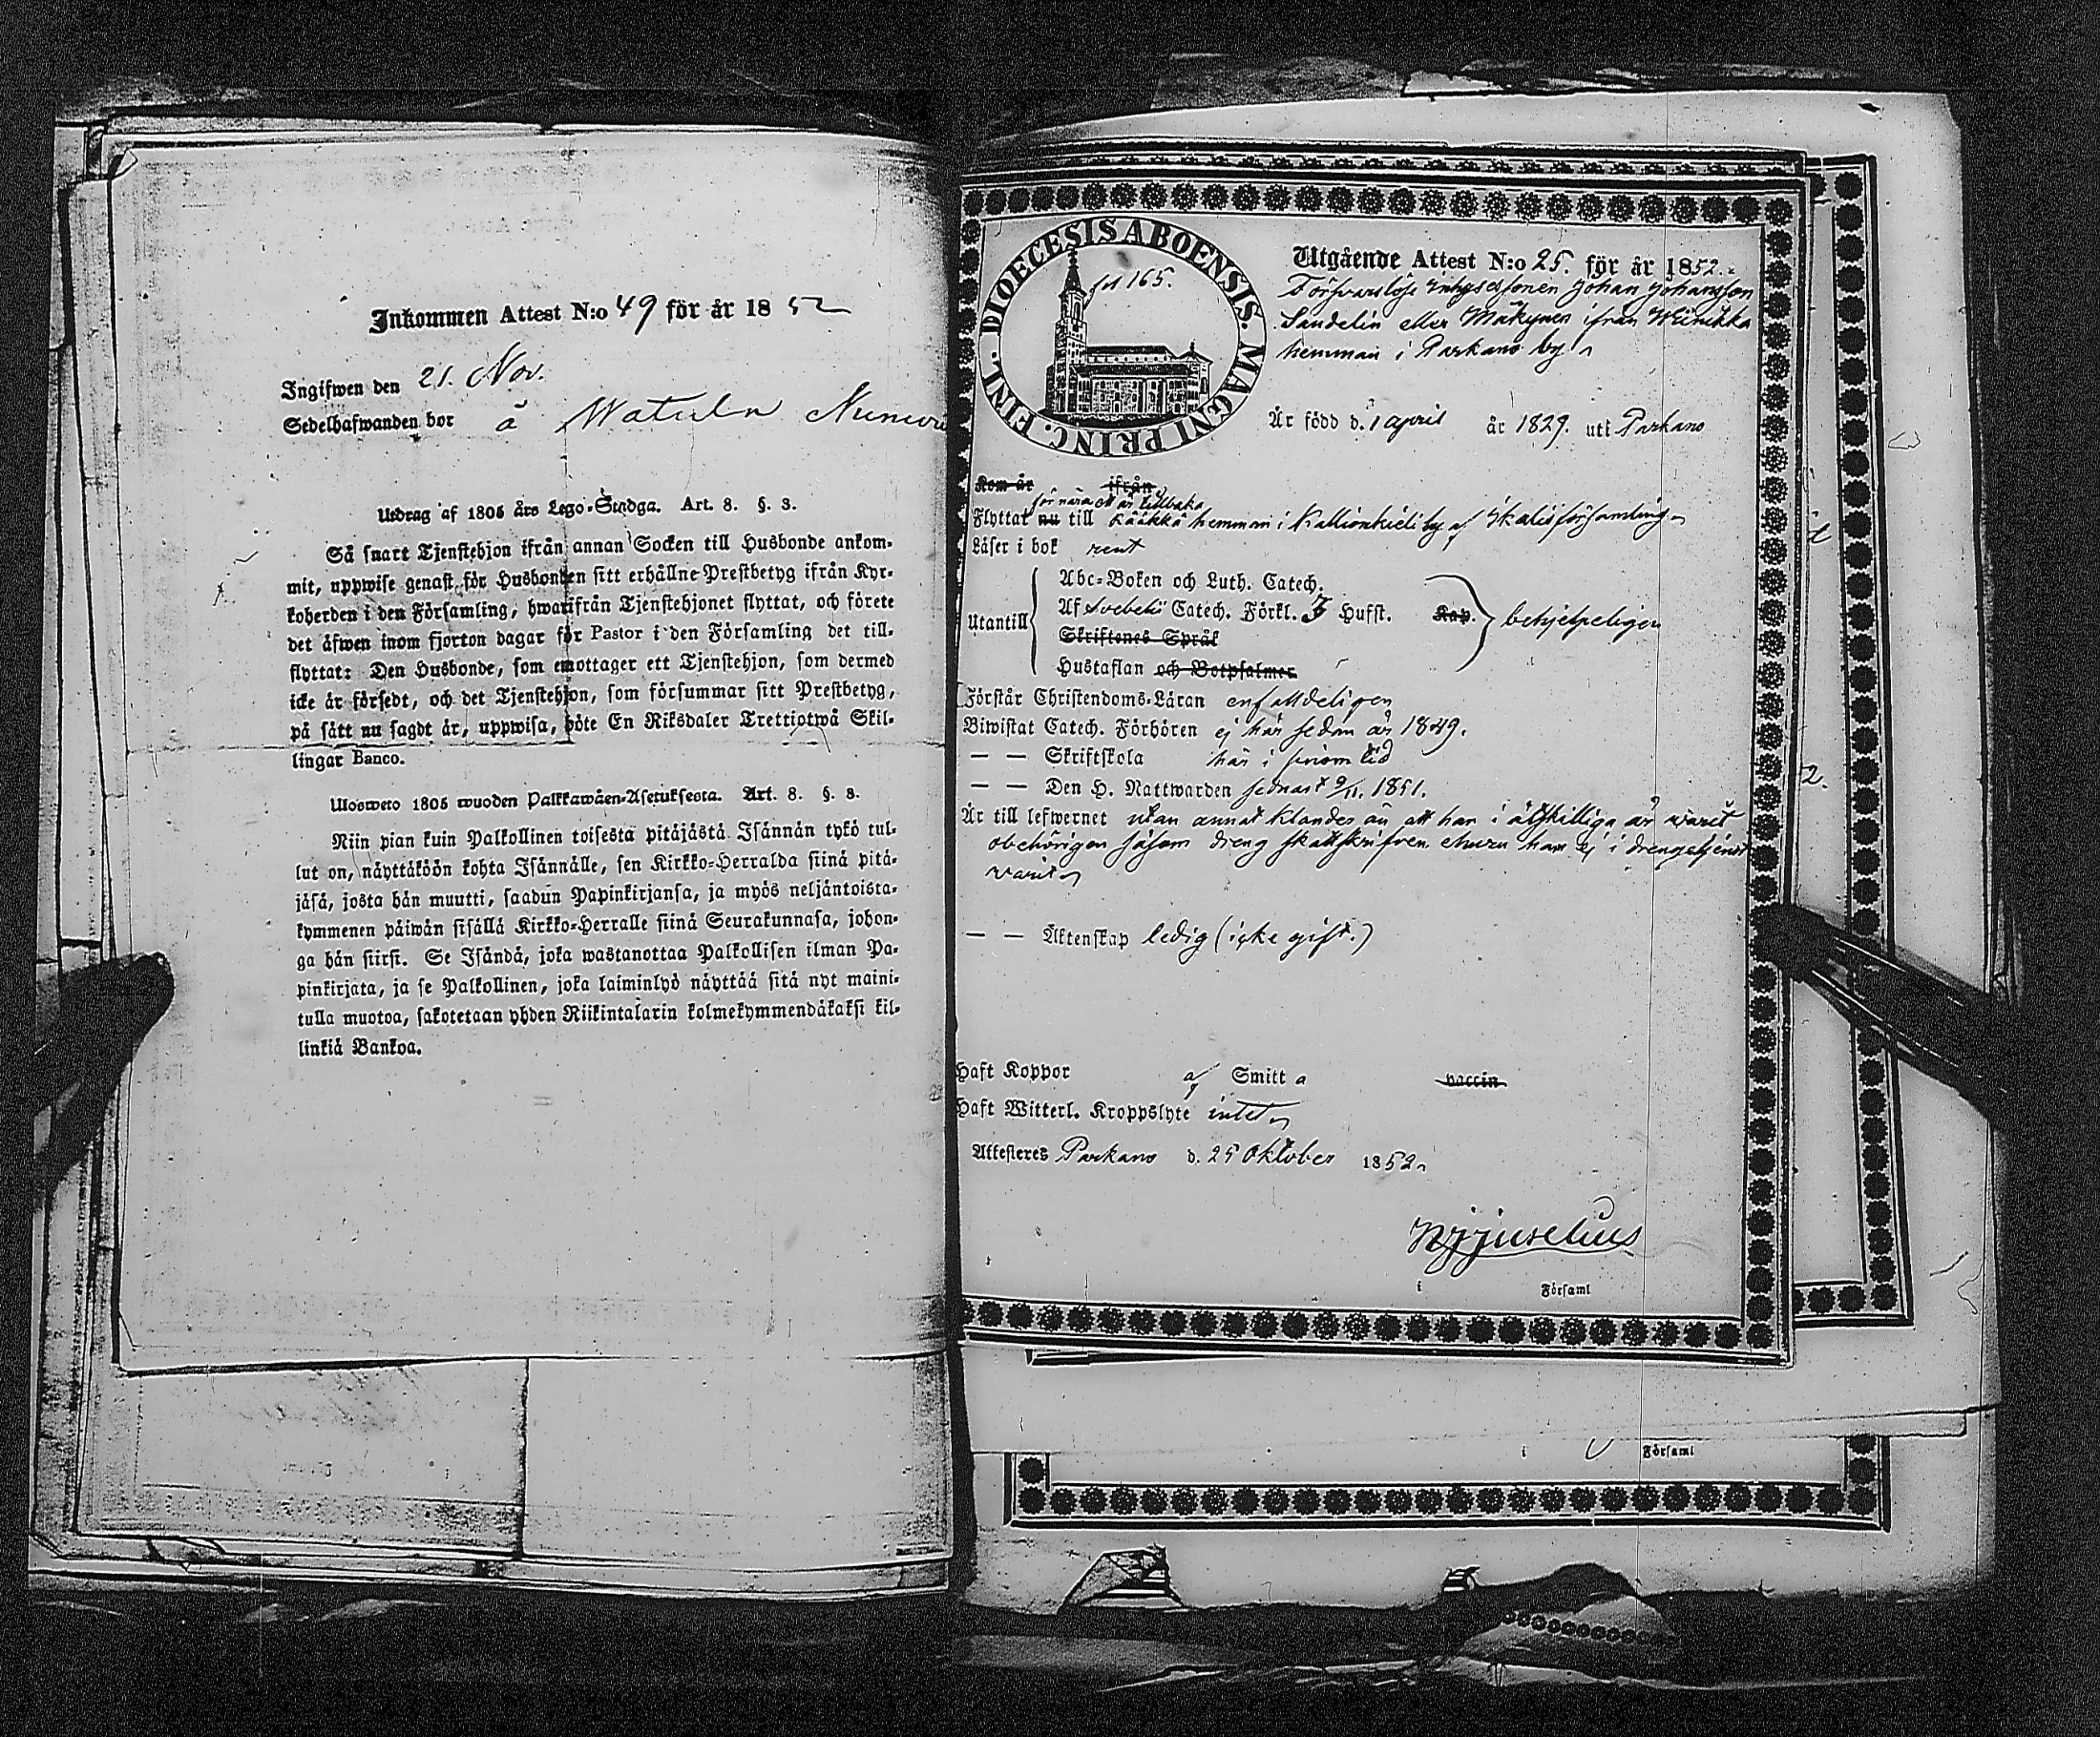 Inkommen Attest N:o 49 för år 1852
Ingifwen den 21. Nov.
Sedelhafwanden bor å Watula
Utdrag af 1805 års Lego-Stadga. Art. 8. §. 3.
Så snart Tjenstehjon ifrån annan Socken till Husbonde ankom-
mit, uppwise genast för Husbonden sitt erhållne Prestbetyg ifrån Kyr-
koherden i den Församling, hwarifrån Tjenstehjonet flyttat, och förete
det äfwen inom fjorton dagar för Pastor i den Församling det till-
flyttat: Den Husbonde, som emottager ett Tjenstehjon, som dermed
icke är försedt, och det Tjenstehjon, som försummar sitt Prestbetyg,
på sätt nu sagdt är, uppwisa, böte En Riksdaler Trettiotwå Skil-
lingar Banco.
Ulosweto 1805 wuoden Palkkawäen-Asetuksesta. Art. 8. §. 3.
Niin pian kuin Palkollinen toisesta pitäjästä Isännän tykö tul-
lut on, näyttäköön kohta Isännälle, sen Kirkko-Herralda siinä pitä-
jäsä, josta hän muutti, saadun Papinkirjansa, ja myös neljäntoista-
kymmenen päiwän sisällä Kirkko-Herralle siinä Seurakunnasa, johon-
ga hän siirsi. Se Isändä, joka wastanottaa Palkollisen ilman Pa-
pinkirjata, ja se Palkollinen, joka laiminlyö näyttää sitä nyt maini-
tulla muotoa, sakotetaan yhden Riikintalarin kolmekymmendäkaksi kil-
linkiä Bankoa.
DIOECESIS ABOENSIS. MAGNI PRINC. FINL.
fol 165.
Utgående Attest N:o 25. för år 1852.
Förswarslöse Inhysespersonen Johan Johansson
Sandelin eller Mäkynen ifrån Weinikka
hemman i Parkano by
Är född d. 1 april år 1829. uti Parkano
Kom år ifrån
för nära ett år tillbaka
Flyttat nu till Rääkkä hemman i Kallionkieli by af Ikalis församling
Läser i bok rent
Abc-Boken och Luth. Catech.
Utantill Af Svebelii Catech. Förkl. 3 Hufst. Kap. behjelpeligen
Skriftenes Språk
Hustaflan och Botpsalmer
Förstår Christendoms-Läran enfalldeligen
Biwistat Catech. Förhören ej här sedan år 1849.
— — Skriftskola här i sinom tid
— — Den H. Nattwarden sednast 9/11. 1851.
Är till lefwernet utan annat klander än att han i åtskilliga år warit
obehörigen såsom dreng skattskrifven ehuru han ej i drengetjenst
warit
— — Äktenskap ledig (icke gift.)
Haft Koppor af Smitta vaccin
Haft Witterl. Kroppslyte intet
Attesteres Parkano d. 25 Oktober 1852
i Församl
i Församl